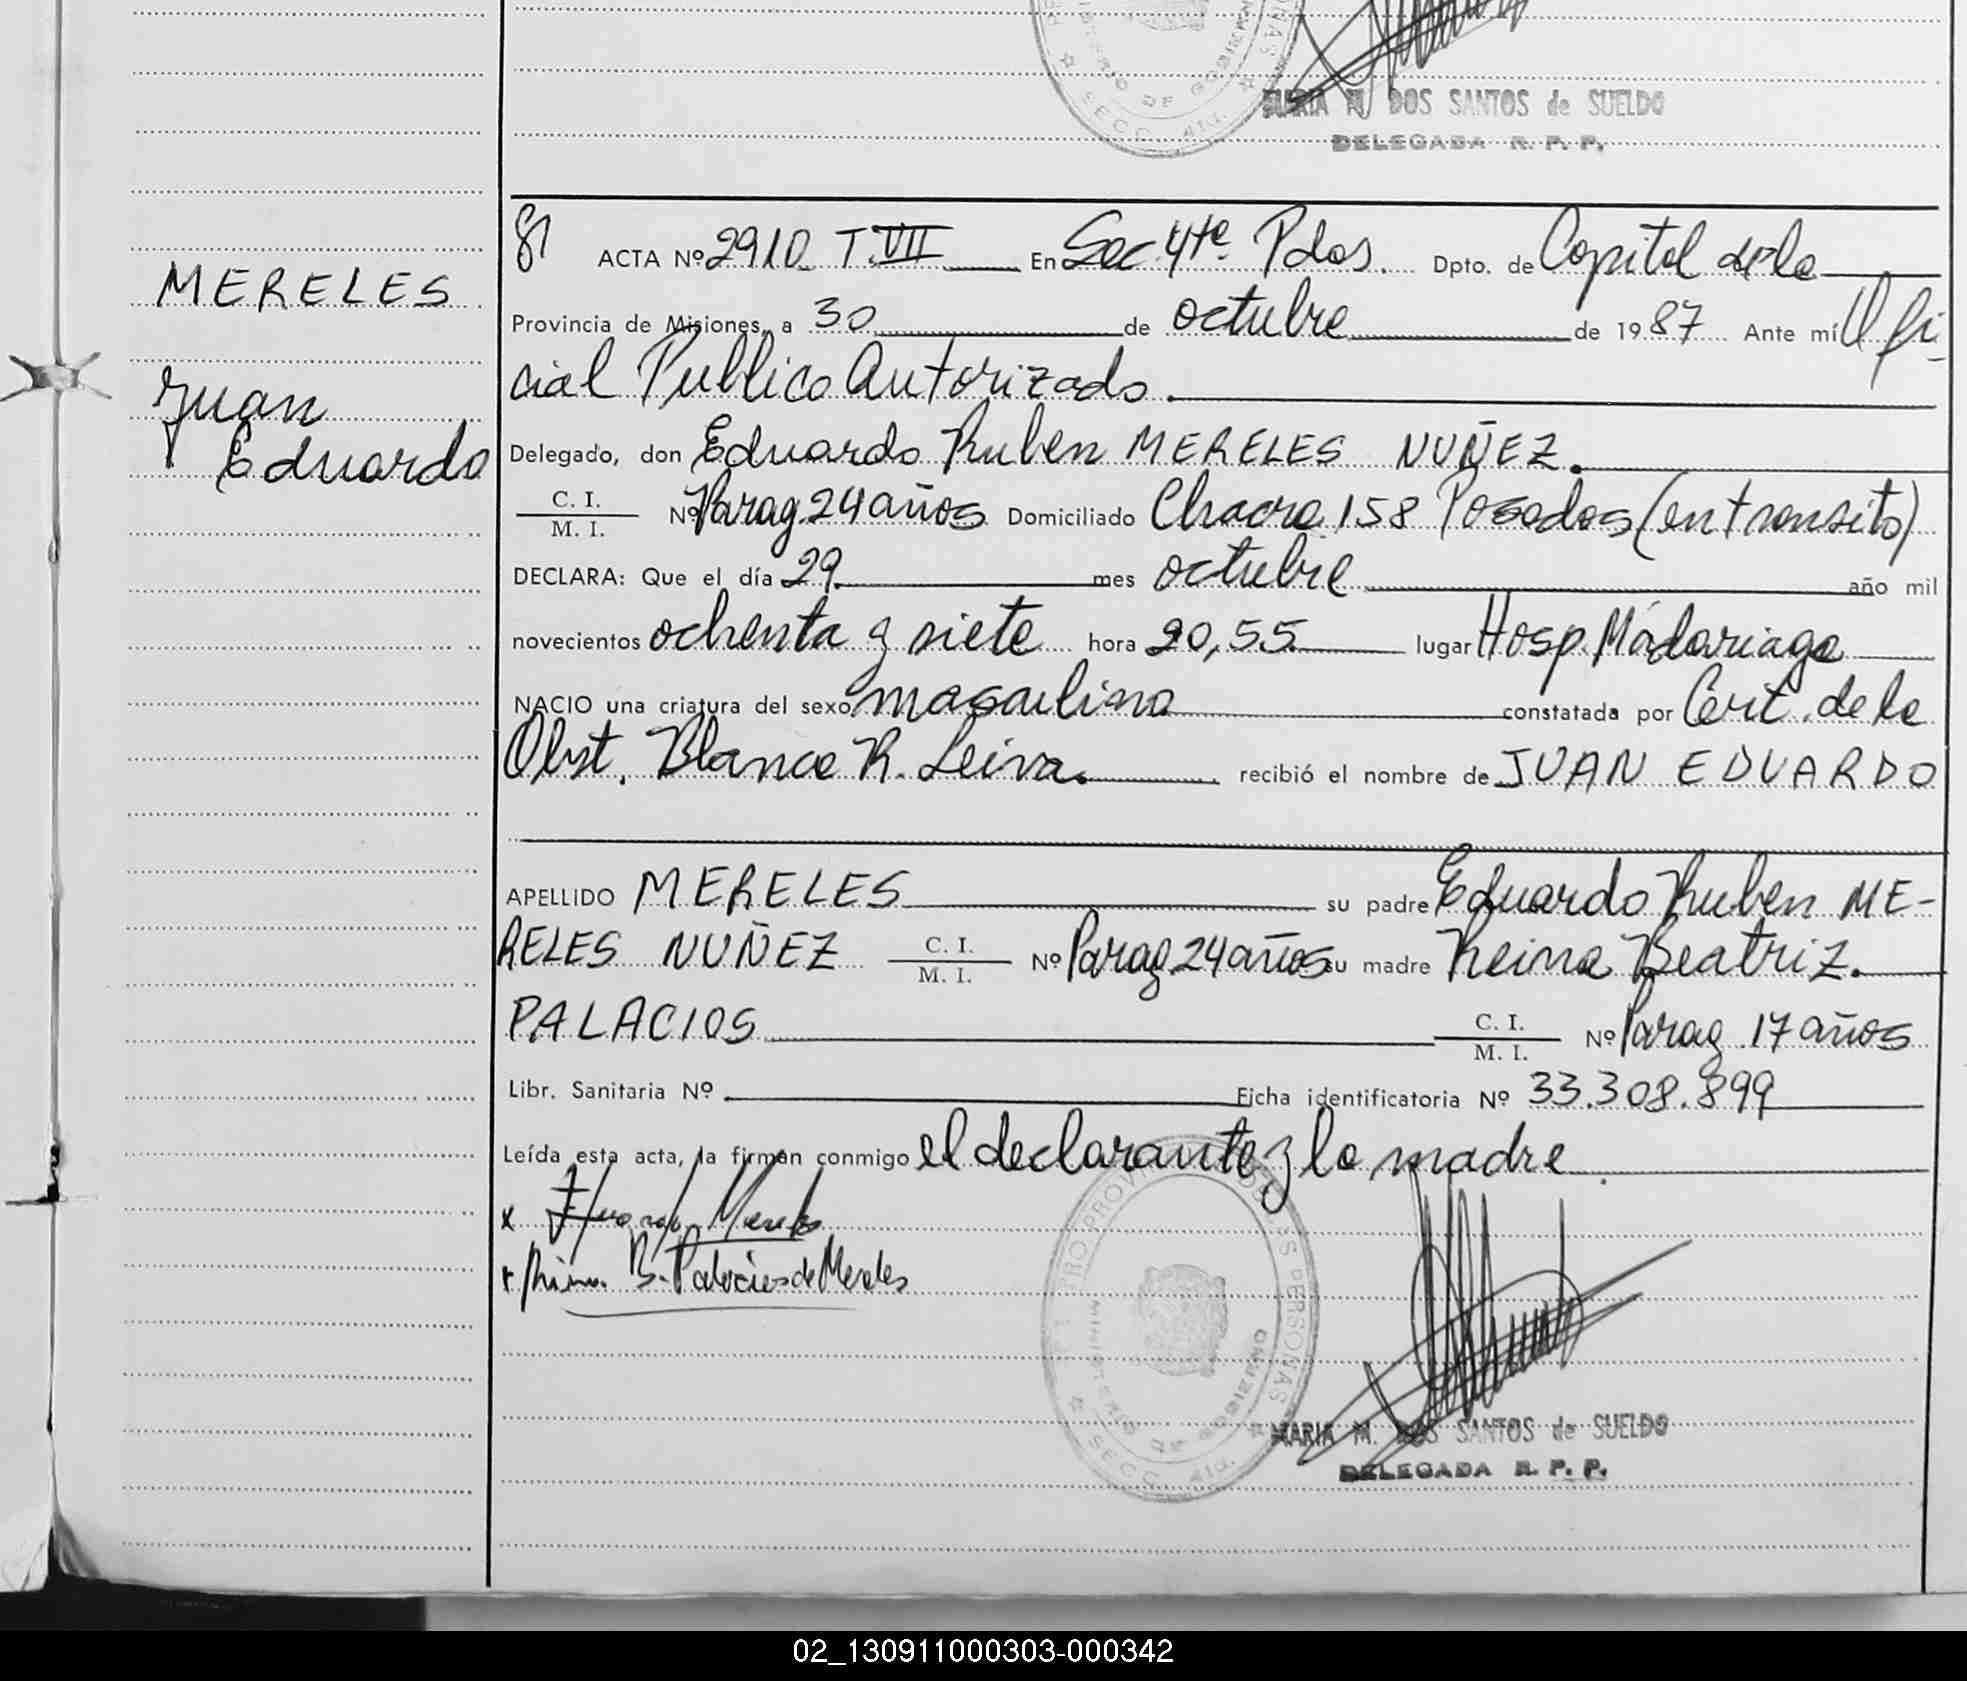 MARIA M. DOS SANTOS de SUELDO
DELEGADA R. P. P.
MERELES
Juan
Eduardo
81 ACTA Nº 2910 T. VII En Sec. 4te. Pdas. Dpto. de Capital de la
Provincia de Misiones, a 30 de octubre de 1987 Ante mí Ofi-
cial Publico Autorizado.
Delegado, don Eduardo Ruben MERELES NUÑEZ.
C. I.
M. I. Nº Parag. 24 años Domiciliado Chacra 158 Posadas (en transito)
DECLARA: Que el día 29 mes octubre año mil
novecientos ochenta y siete hora 20,55 lugar Hosp. Madariaga
NACIO una criatura del sexo masculino constatada por Cert. de la
Obst. Blanca R. Leiva. recibió el nombre de JUAN EDUARDO
APELLIDO MERELES su padre Eduardo Ruben ME-
RELES NUÑEZ C. I. M. I. Nº Parag. 24 años su madre Reina Beatriz.
PALACIOS C. I. M. I. Nº Parag. 17 años
Libr. Sanitaria Nº Ficha identificatoria Nº 33.308.899
Leída esta acta, la firman conmigo el declarante y la madre
x
B. Palacios de Mereles
REGISTRO PROVINCIAL DE LAS PERSONAS
MINISTERIO DE GOBIERNO
SECC. 4ta.
MARIA M. DOS SANTOS de SUELDO
DELEGADA R. P. P.
02_130911000303-000342